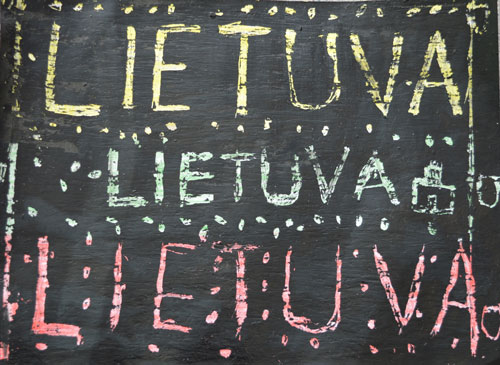 LIETUVA
LIETUVA
LIETUVA